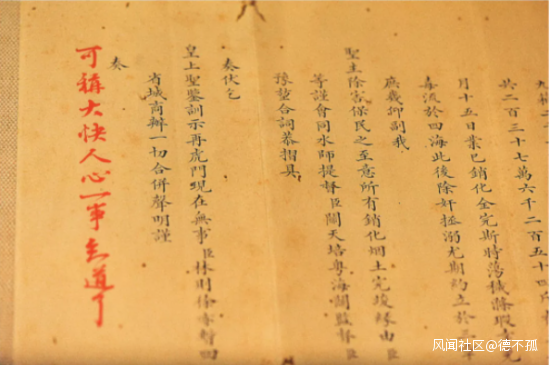 共二百三十七萬六千二百五十四斤
月十五日業已銷化全完斯時蕩穢滌瑕幸免
毒流於四海此後除奸拯溺尤期約立於三章
庶幾仰副我
聖主除害保民之至意所有銷化烟土完竣緣由臣
等謹會同水師提督臣關天培粵海關監督臣
豫堃合詞恭摺具
奏伏乞
皇上聖鑒訓示再虎門現在無事臣林則徐亦暫回
省城商辦一切合併聲明謹
奏
可稱大快人心一事知道了
风闻社区@德不孤